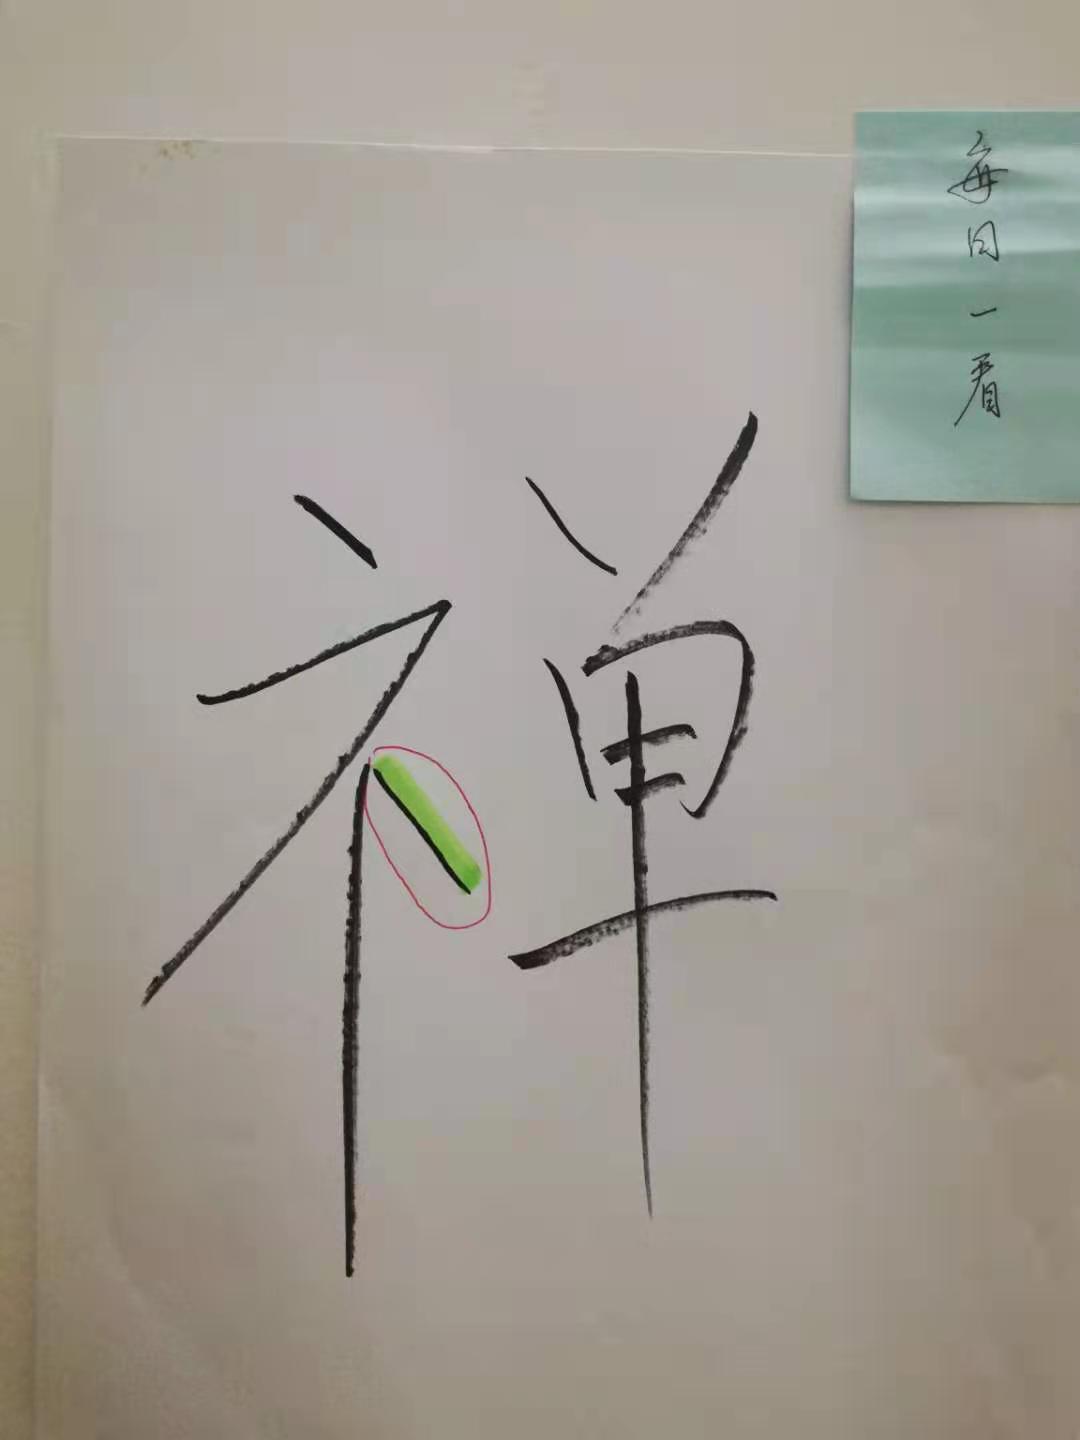 禅
每日一看